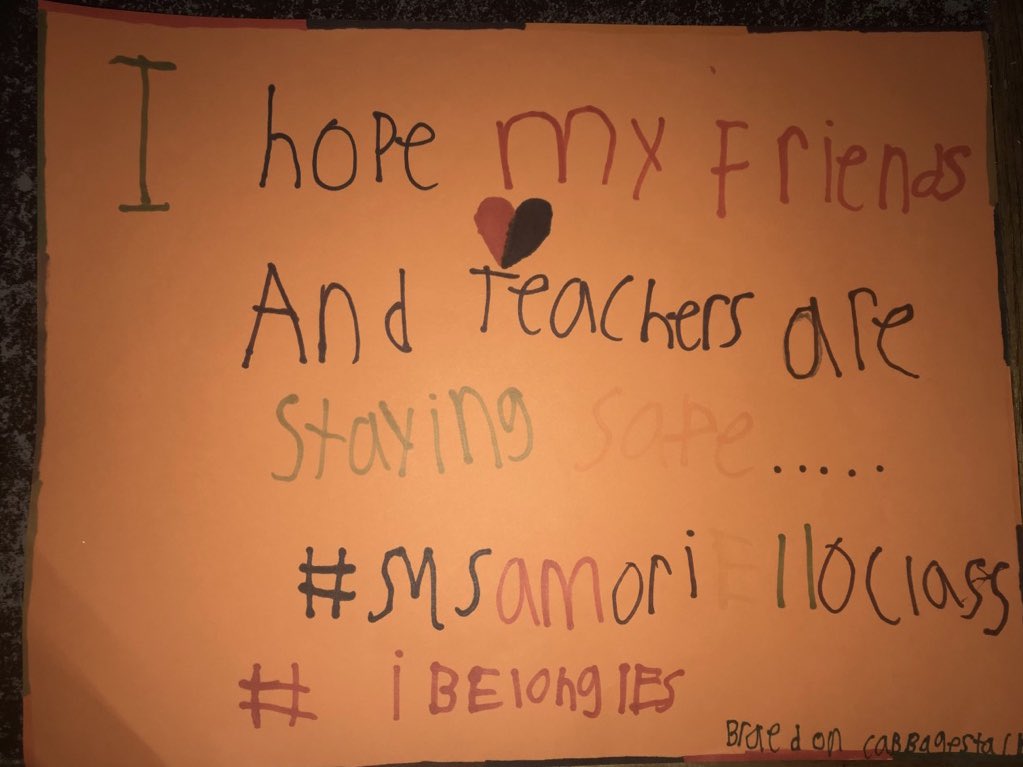 I hope my Friends
And Teachers are
staying safe.....
#SMSamori Elloclass
# iBElongIES
Braedon cabbagestalk